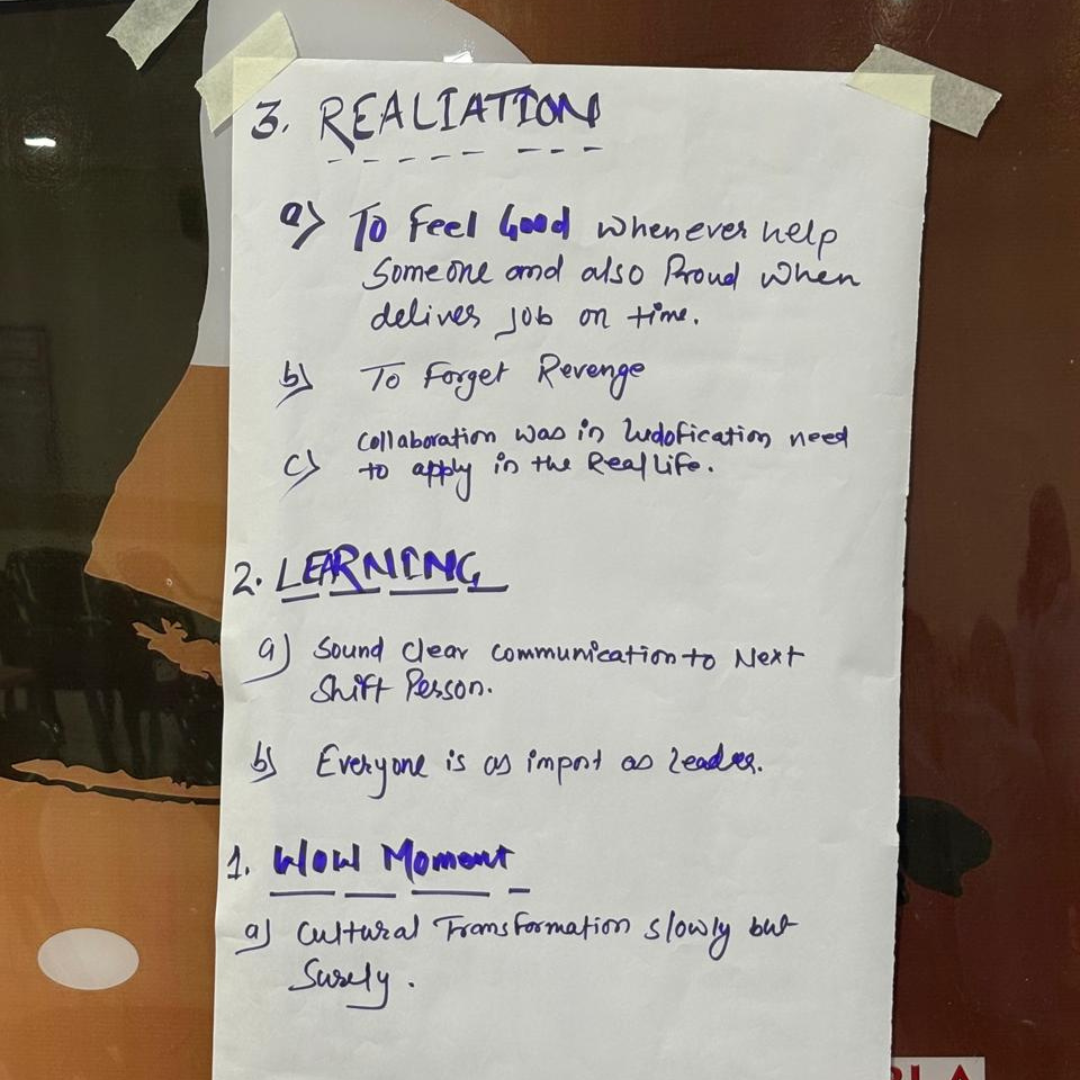 3. REALIATION
a) To Feel Good whenever help
Someone and also Proud when
delives job on time.
b) To Forget Revenge
c) Collaboration was in Ludofication need
to apply in the Real Life.
2. LEARNING
a) Sound Clear communication to Next
Shift Person.
b) Everyone is as impont as Leader.
1. WOW Moment
a) Cultural Transformation slowly but
Surely.